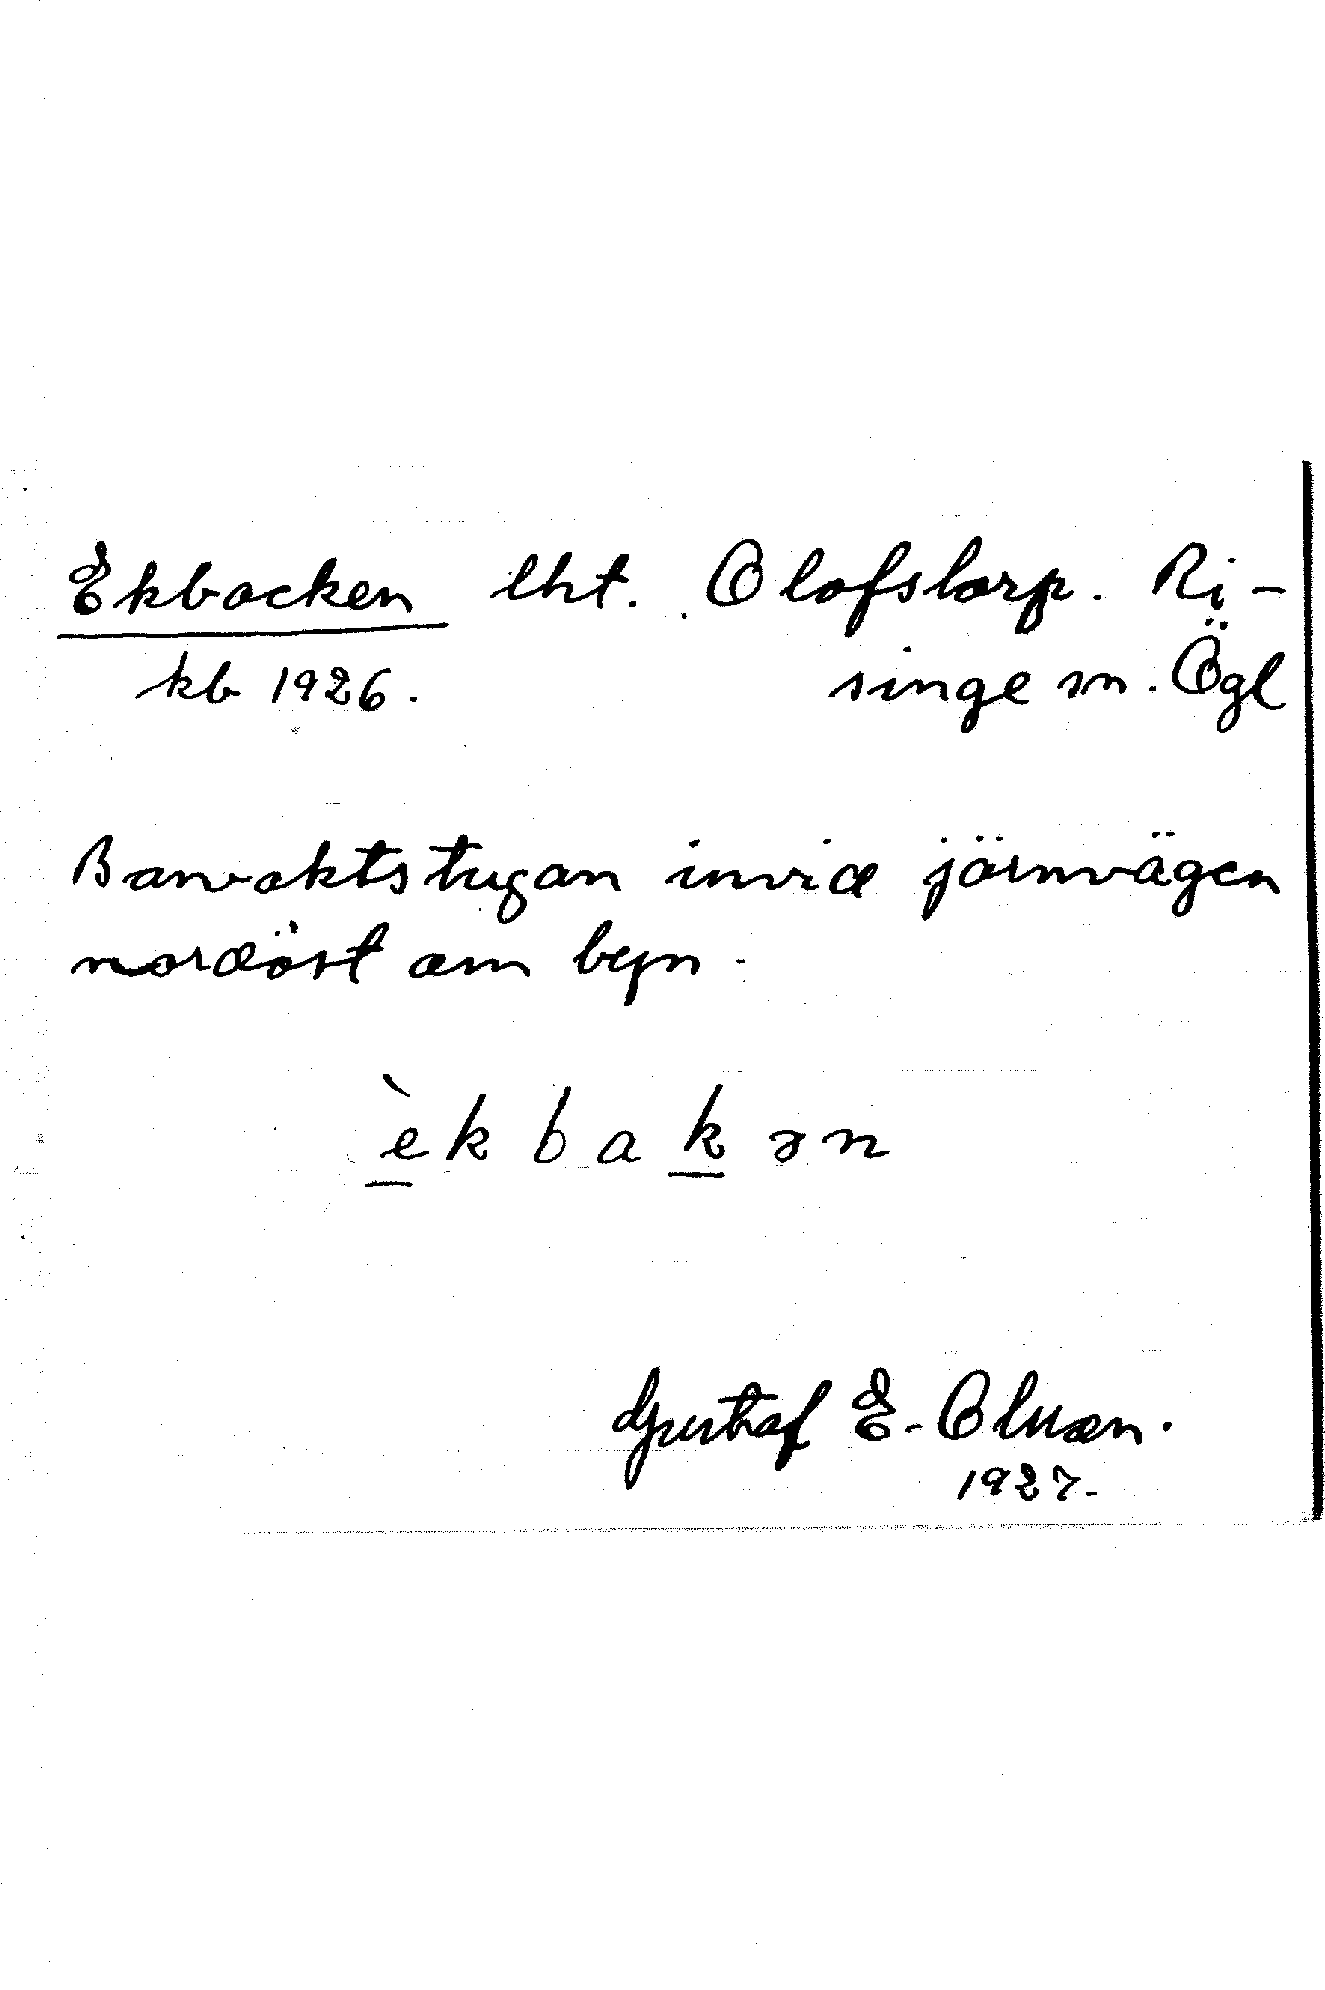 Ekbacken lht. Olofstorp. Ri-
kb 1926. singe sn. Ögl
Banvaktstugan invid järnvägen
nordöst om byn.
èkbakən
Gustaf E. Olsson.
1927.